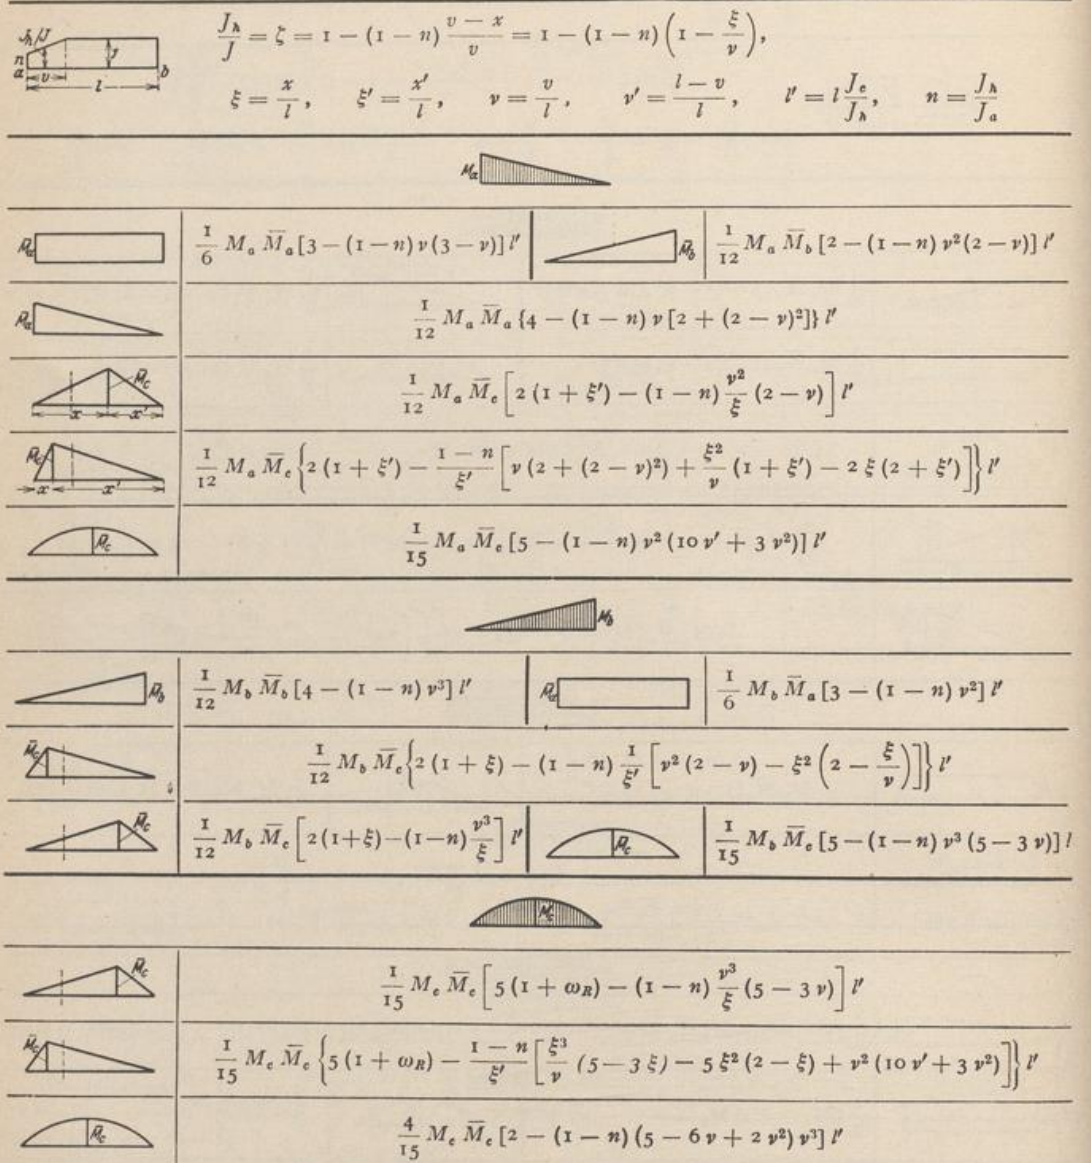 J_h/J n a υ J l b
J_h/J = ζ = 1 − (1 − n) (υ − x)/υ = 1 − (1 − n) (1 − ξ/ν),
ξ = x/l, ξ′ = x′/l, ν = υ/l, ν′ = (l − υ)/l, l′ = l J_c/J_h, n = J_h/J_a
M_a
M̄_a 1/6 M_a M̄_a [3 − (1 − n) ν (3 − ν)] l′ M̄_b 1/12 M_a M̄_b [2 − (1 − n) ν² (2 − ν)] l′
M̄_a 1/12 M_a M̄_a {4 − (1 − n) ν [2 + (2 − ν)²]} l′
M̄_c x x′ 1/12 M_a M̄_c [2 (1 + ξ′) − (1 − n) ν²/ξ (2 − ν)] l′
M̄_c x x′ 1/12 M_a M̄_c {2 (1 + ξ′) − (1 − n)/ξ′ [ν (2 + (2 − ν)²) + ξ²/ν (1 + ξ′) − 2 ξ (2 + ξ′)]} l′
M̄_c 1/15 M_a M̄_c [5 − (1 − n) ν² (10 ν′ + 3 ν²)] l′
M_b
M̄_b 1/12 M_b M̄_b [4 − (1 − n) ν³] l′ M̄_a 1/6 M_b M̄_a [3 − (1 − n) ν²] l′
M̄_c 1/12 M_b M̄_c {2 (1 + ξ) − (1 − n) 1/ξ′ [ν² (2 − ν) − ξ² (2 − ξ/ν)]} l′
M̄_c 1/12 M_b M̄_c [2 (1 + ξ) − (1 − n) ν³/ξ] l′ M̄_c 1/15 M_b M̄_c [5 − (1 − n) ν³ (5 − 3 ν)] l
M_c
M̄_c 1/15 M_c M̄_c [5 (1 + ω_R) − (1 − n) ν³/ξ (5 − 3 ν)] l′
M̄_c 1/15 M_c M̄_c {5 (1 + ω_R) − (1 − n)/ξ′ [ξ³/ν (5 − 3 ξ) − 5 ξ² (2 − ξ) + ν² (10 ν′ + 3 ν²)]} l′
M̄_c 4/15 M_c M̄_c [2 − (1 − n) (5 − 6 ν + 2 ν²) ν³] l′